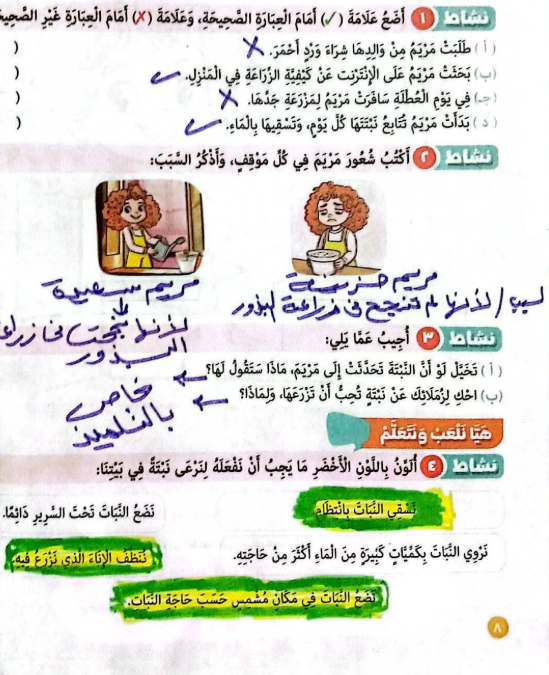 نشاط ١ أَضَعُ عَلَامَةَ (✓) أَمَامَ الْعِبَارَةِ الصَّحِيحَةِ، وَعَلَامَةَ (✗) أَمَامَ الْعِبَارَةِ غَيْرِ
(أ) طَلَبَتْ مَرْيَمُ مِنْ وَالِدِهَا شِرَاءَ وَرْدٍ أَحْمَرَ. ✗ (
(ب) بَحَثَتْ مَرْيَمُ عَلَى الْإِنْتِرْنِت عَنْ كَيْفِيَّةِ الزِّرَاعَةِ فِي الْمَنْزِلِ. ✓ (
(جـ) فِي يَوْمِ الْعُطْلَةِ سَافَرَتْ مَرْيَمُ لِمَزْرَعَةِ جَدِّهَا. ✗ (
(د) بَدَأَتْ مَرْيَمُ تُتَابِعُ نَبْتَتَهَا كُلَّ يَوْمٍ، وَتَسْقِيهَا بِالْمَاءِ. ✓ (
نشاط ٢ أَكْتُبُ شُعُورَ مَرْيَمَ فِي كُلِّ مَوْقِفٍ، وَأَذْكُرُ السَّبَبَ:
مريم حزينة
السبب / لأنها لم تنجح فى زراعة البذور
مريم سعيدة
لأنها نجحت فى زراعة
البذور
نشاط ٣ أُجِيبُ عَمَّا يَلِي:
(أ) تَخَيَّلْ لَوْ أَنَّ النَّبْتَةَ تَحَدَّثَتْ إِلَى مَرْيَمَ، مَاذَا سَتَقُولُ لَهَا؟
(ب) احْكِ لِزُمَلَائِكَ عَنْ نَبْتَةٍ تُحِبُّ أَنْ تَزْرَعَهَا، وَلِمَاذَا؟
خاص
بالتلميذ
هَيَّا نَلْعَبْ وَنَتَعَلَّمْ
نشاط ٤ أُلَوِّنُ بِاللَّوْنِ الْأَخْضَرِ مَا يَجِبُ أَنْ نَفْعَلَهُ لِنَرْعَى نَبْتَةً فِي بَيْتِنَا:
نَسْقِي النَّبَاتَ بِانْتِظَامٍ
نَضَعُ النَّبَاتَ تَحْتَ السَّرِيرِ دَائِمًا.
نَرْوِي النَّبَاتَ بِكَمِّيَّاتٍ كَبِيرَةٍ مِنَ الْمَاءِ أَكْثَرَ مِنْ حَاجَتِهِ.
نُنَظِّفُ الْإِنَاءَ الَّذِي نَزْرَعُ فِيهِ.
نَضَعُ النَّبَاتَ فِي مَكَانٍ مُشْمِسٍ حَسَبَ حَاجَةِ النَّبَاتِ.
٨